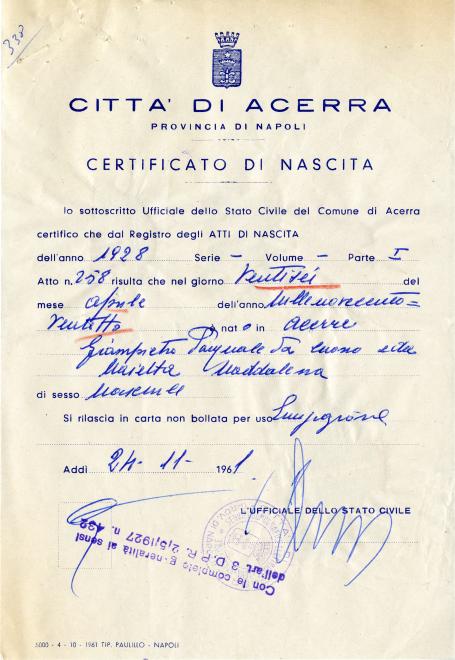 338
CITTA' DI ACERRA
PROVINCIA DI NAPOLI
CERTIFICATO DI NASCITA
Io sottoscritto Ufficiale dello Stato Civile del Comune di Acerra
certifico che dal Registro degli ATTI DI NASCITA
dell'anno 1928 Serie - Volume - Parte I
Atto n. 258 risulta che nel giorno Ventisei del
mese aprile dell'anno Millenovecento=
Ventotto è nato in Acerra
Giampietro Pasquale da
Maddalena
di sesso Maschile
Si rilascia in carta non bollata per uso
Addì 24-11-1961
L'UFFICIALE DELLO STATO CIVILE
Con le complete generalità ai sensi
dell'art 3 D.P.R. 2/5/1927 n. 432
5000 - 4 - 10 - 1961 TIP. PAULILLO - NAPOLI